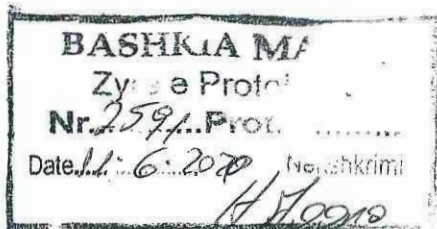 BASHKIA MA
Zy e Proto
Nr. 2591 Prot. ..........
Date 11.6.2020 Nënshkrimi